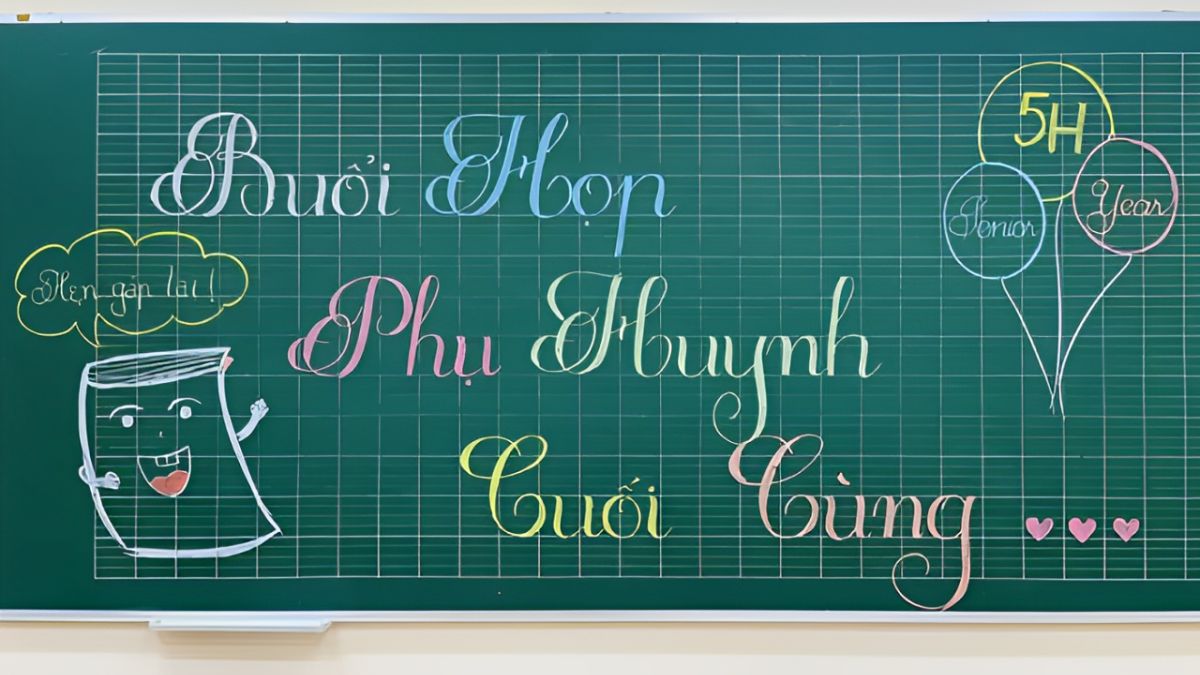 Buổi Họp
Phụ Huynh
Cuối Cùng
Hẹn gặp lại!
5H
Senior
Year